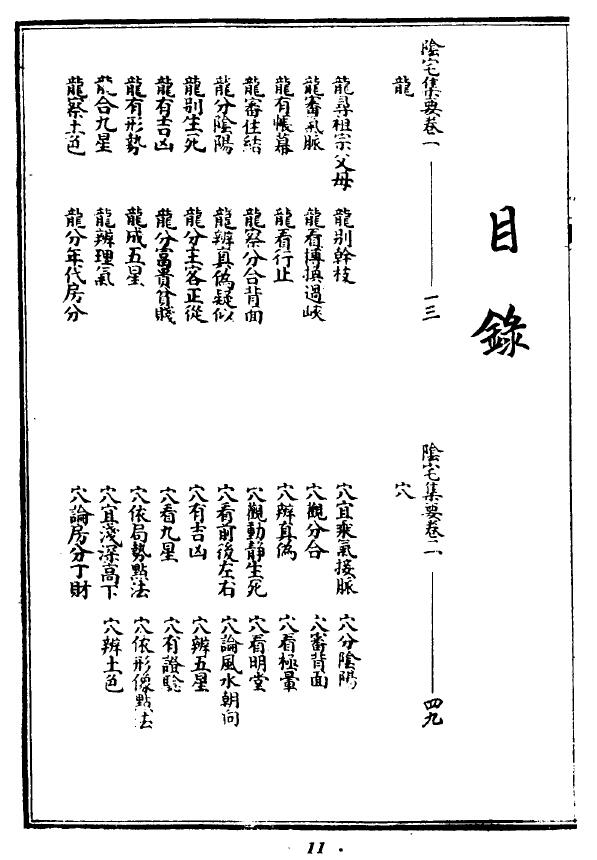 目錄
陰宅集要卷一 一三
龍
龍尋祖宗父母 龍别幹枝
龍審氣脈 龍看博換過峽
龍有帳幕 龍看行止
龍審住結 龍察分合背面
龍分陰陽 龍辨真偽疑似
龍别生死 龍分主客正從
龍有吉凶 龍分富貴貧賤
龍有形勢 龍成五星
龍合九星 龍辨理氣
龍察土色 龍分年代房分
陰宅集要卷二 四九
穴
穴宜乘氣接脈 穴分陰陽
穴觀分合 穴審背面
穴辨真偽 穴看極暈
穴觀動靜生死 穴看明堂
穴看前後左右 穴論風水朝向
穴有吉凶 穴辨五星
穴看九星 穴有證驗
穴依局勢點法 穴依形像點法
穴宜淺深高下 穴辨土色
穴論房分丁財
11